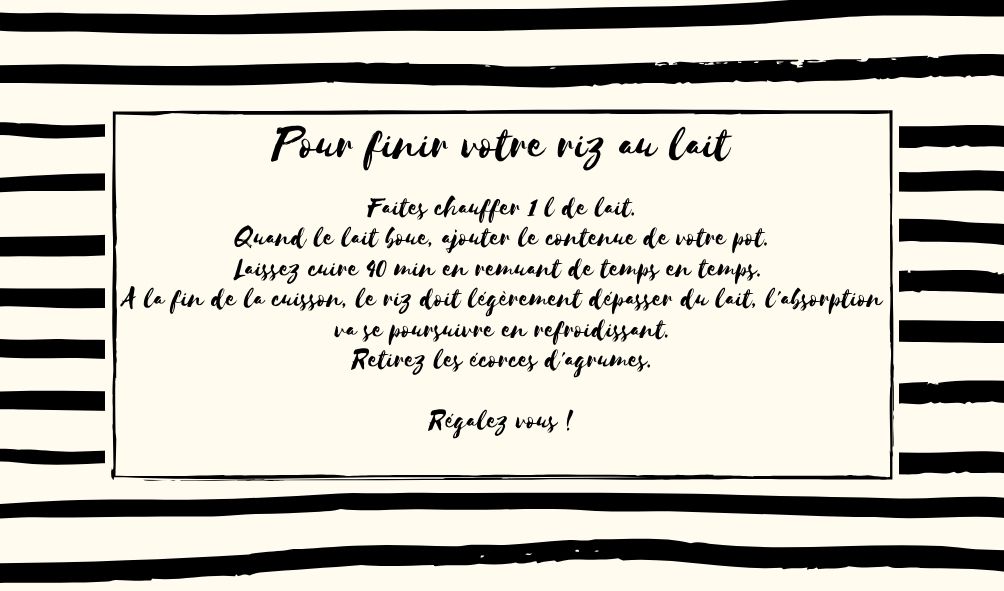 Pour finir votre riz au lait
Faites chauffer 1 l de lait.
Quand le lait boue, ajouter le contenue de votre pot.
Laissez cuire 40 min en remuant de temps en temps.
A la fin de la cuisson, le riz doit légèrement dépasser du lait, l'absorption
va se poursuivre en refroidissant.
Retirez les écorces d'agrumes.
Régalez vous !